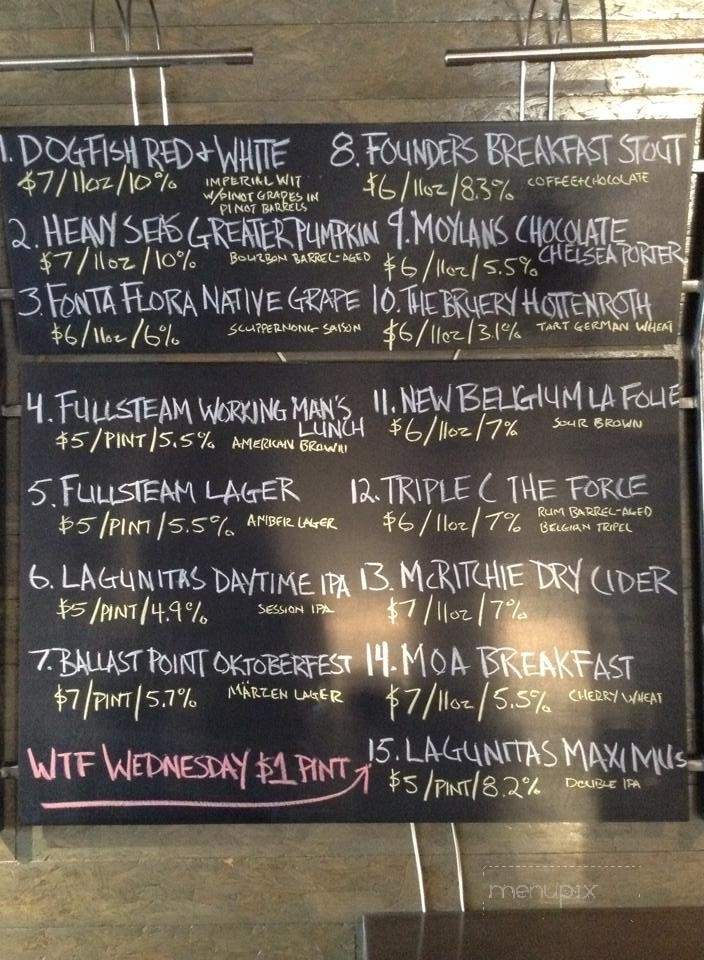 1. DOGFISH RED + WHITE
$7/11oz/10% IMPERIAL WIT
W/PINOT GRAPES IN
PINOT BARRELS
2. HEAVY SEAS GREATER PUMPKIN
$7/11oz/10% BOURBON BARREL-AGED
3. FONTA FLORA NATIVE GRAPE
$6/11oz/6% SCUPPERNONG SAISON
4. FULLSTEAM WORKING MAN'S
LUNCH
$5/PINT/5.5% AMERICAN BROWN
5. FULLSTEAM LAGER
$5/PINT/5.5% AMBER LAGER
6. LAGUNITAS DAYTIME IPA
$5/PINT/4.9% SESSION IPA
7. BALLAST POINT OKTOBERFEST
$7/PINT/5.7% MÄRZEN LAGER
WTF WEDNESDAY $1 PINT
8. FOUNDERS BREAKFAST STOUT
$6/11oz/8.3% COFFEE+CHOCOLATE
9. MOYLANS CHOCOLATE
CHELSEA PORTER
$6/11oz/5.5%
10. THE BRUERY HOTTENROTH
$6/11oz/3.1% TART GERMAN WHEAT
11. NEW BELGIUM LA FOLIE
$6/11oz/7% SOUR BROWN
12. TRIPLE C THE FORCE
$6/11oz/7% RUM BARREL-AGED
BELGIAN TRIPEL
13. MCRITCHIE DRY CIDER
$7/11oz/7%
14. MOA BREAKFAST
$7/11oz/5.5% CHERRY WHEAT
15. LAGUNITAS MAXIMUS
$5/PINT/8.2% DOUBLE IPA
menupix